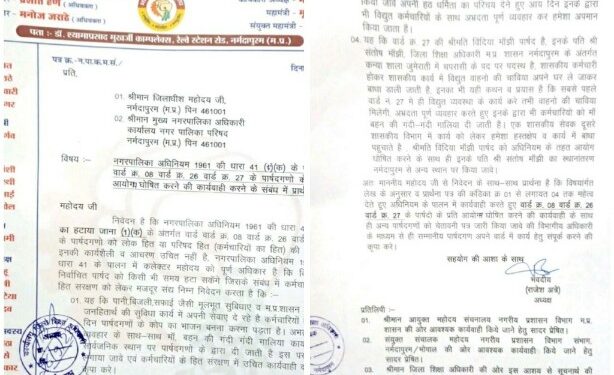 मनोज जराहे (अधिवक्ता)
महामंत्री -
संयुक्त महामंत्री -
पता : डॉ. श्यामाप्रसाद मुखर्जी काम्पलेक्स, रेल्वे स्टेशन रोड, नर्मदापुरम (म.प्र.)
पत्र क्र.न.पा.क.म.सं./
दिनांक
प्रति,
01. श्रीमान जिलाधीश महोदय जी,
नर्मदापुरम (म.प्र.) पिन 461001
02. श्रीमान मुख्य नगरपालिका अधिकारी
कार्यालय नगर पालिका परिषद
नर्मदापुरम (म.प्र.) पिन 461001
विषय :- नगरपालिका अधिनियम 1961 की धारा 41 (1)(क) के
वार्ड क्र. 08 वार्ड क्र. 26 वार्ड क्र. 27 के पार्षदगणों के
आयोग्य घोषित करने की कार्यवाही करने के संबंध में प्रार्थ
महोदय जी
निवेदन है कि नगरपालिका अधिनियम 1961 की धारा 41
का हटाया जाना (1)(क) के अंतर्गत वार्ड क्र. 08 वार्ड क्र. 26 वार्ड
के पार्षदगणों को लोक हित या परिषद हित (कर्मचारियों का हित) की
इनकी कार्यशैली व आधरण उचित नहीं है. नगरपालिका अधिनियम 19
धारा 41 के पालन में कलेक्टर महोदय को पूर्ण अधिकार है कि
निर्वाचित पार्षद को किसी भी समय हटा सकेंगे जिसके संबंध में कर्मच
हित संरक्षण को लेकर मजदूर संघ निम्न निवेदन करता है कि
01. यह कि पानी,बिजली,सफाई जैसी मूलभूत सुविधाए व म.प्र.शासन
जनहितार्थ की सुविधा कार्य में अपनी सेवाए दे रहे है कर्मचारियों
दिन पार्षदगणों के कोप का भाजन बनना करना पड़ता है।
व्यवहार के साथ-साथ माँ, बहन की गंदी गंदी गालिया कार्या
सार्वजनिक स्थान पर पार्षदगणों के द्वारा दी जाती है इस पर
लगाया जावे एवं कर्मचारियों के हित संरक्षण में उचित कार्यवाही
किया जावे अपनी हठ धर्मिता का परिचय देते हुए आए दिन इनके द्वारा
भी विद्युत कर्मचारियों के साथ अभद्रता पूर्ण व्यवहार कर हमेशा अपमान
किया जाता है।
04. यह कि वार्ड क्र. 27 की श्रीमति विंदिया मॉझी पार्षद है, इनके पति श्री
संतोष मॉझी, जिला शिक्षा अधिकारी म.प्र.शासन नर्मदापुरम के अंतर्गत
कन्या शाला जुमेराती में चपरासी के पद पर पदस्थ है। शासकीय कर्मचारी
होकर शासकीय कार्य में विद्युत वाहन की चाविया अपने घर ले जाकर
बाधा डाली जाती है, इनका यह भी कहना रहता है कि सबसे पहले
वार्ड न. 27 में ही विद्युत व्यवस्था के कार्य करे तभी वाहनो की चाविया
मिलेगी. अभद्रता पूर्ण व्यवहार करते हुए इनके द्वारा भी कर्मचारियों को माँ
बहन की गंदी-गंदी गालिया दी जाती है। एक शासकीय सेवक दूसरे
शासकीय विभाग में काम को लेकर हमेशा हस्तक्षेप व कार्य में बाधा
पहुचाते है. श्रीमति विंदिया मॉझी पार्षद को अधिनियम के तहत आयोग्य
घोषित करने के साथ ही इनके पति श्री संतोष मॉझी का स्थानातरण
नर्मदापुरम से अन्य स्थान पर किया जावे।
अतः माननीय महोदय जी से निवेदन के साथ-साथ प्रार्थना है कि विषयांर्गत
लेख के अनुसार व प्रार्थना पत्र की कंडिका क्र 01 से लगायत 04 तक महोत्व
देते हुए अधिनियम के पालन में कार्यवाही करते हुए वार्ड क्र. 08 वार्ड क्र. 26
वार्ड क्र. 27 के पार्षदो के प्रति आयोग्य घोषित करने की कार्यवाही के साथ
ही अन्य पार्षदगणों को चेतावनी पत्र जारी किया जावे की विभागीय अधिकारी
के माध्यम से ही सम्मानीय पार्षदगण अपने वार्ड में कार्य हेतु संपूर्क करने की
कृपा करे।
सहयोग की आशा के साथ
भवदीय
(राजेश अत्रे)
अध्यक्ष
प्रतिलिपि :-
01. श्रीमान आयुक्त महोदय संचनालय नगरीय प्रशासन विभाग म.प्र.
शासन की ओर आवश्यक कार्यवाही किये जाने हेतु सादर प्रेषित।
02. संयुक्त संचालक महोदय नगरीय प्रशासन विभाग संभाग.
नर्मदापुरम/भोपाल की ओर आवश्यक कार्यवाही किये जाने हेतु
सादर प्रेषित।
03. श्रीमान जिला शिक्षा अधिकारी की ओर इस आशय से सूचनार्थ की